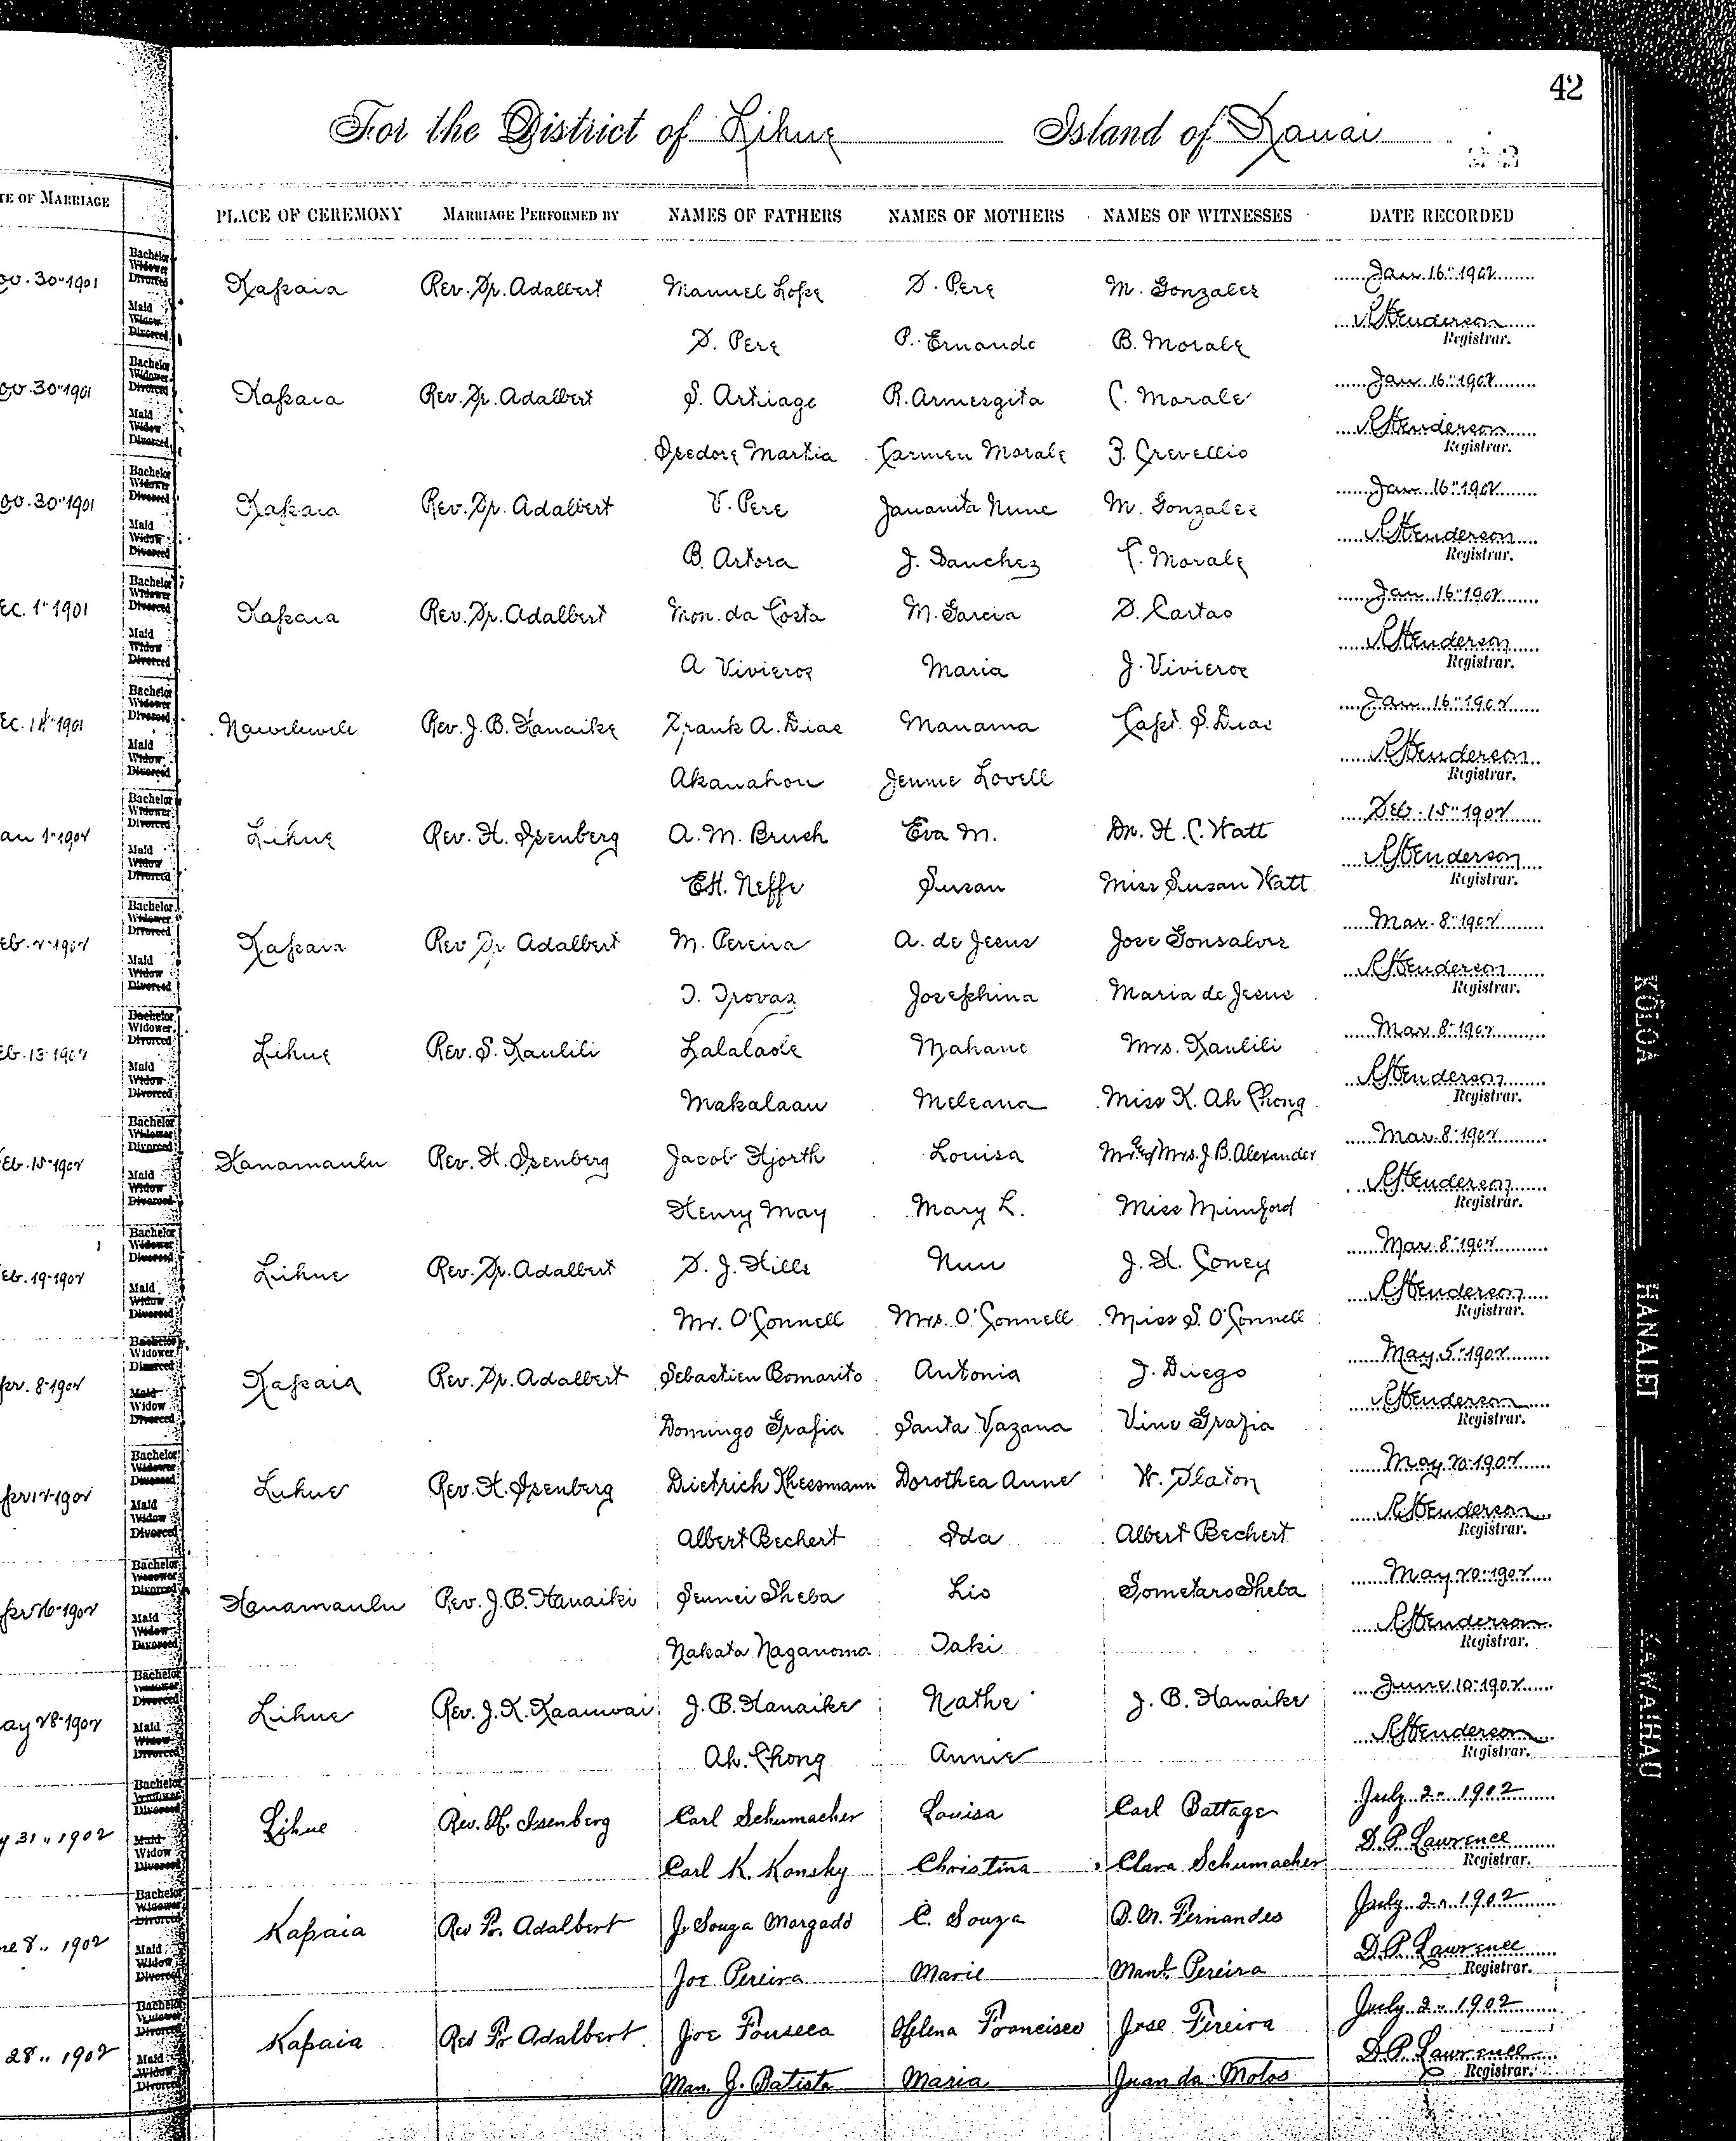 42
For the District of Lihue Island of Kauai
TE OF MARRIAGE PLACE OF CEREMONY MARRIAGE PERFORMED BY NAMES OF FATHERS NAMES OF MOTHERS NAMES OF WITNESSES DATE RECORDED
ov. 30" 1901 Bachelor Widower Divorced Kapaia Rev. Fr. Adalbert Manuel Lope D. Pere M. Gonzales Jan 16" 1902
Maid Widow Divorced D. Pere P. Ernande B. Morale RHenderson Registrar.
ov. 30" 1901 Bachelor Widower Divorced Kapaia Rev. Fr. Adalbert S. Artiago R. Armesgita C. Morale Jan 16" 1902
Maid Widow Divorced Isedore Martia Carmen Morale Z. Crevellio RHenderson Registrar.
ov. 30" 1901 Bachelor Widower Divorced Kapaia Rev. Fr. Adalbert V. Pere Jananita Nune M. Gonzales Jan 16" 1902
Maid Widow Divorced B. Artora J. Sanchez C. Morale RHenderson Registrar.
ec. 1" 1901 Bachelor Widower Divorced Kapaia Rev. Fr. Adalbert Mon. da Costa M. Garcia D. Cartao Jan 16" 1902
Maid Widow Divorced A Vivieros Maria J. Vivieros RHenderson Registrar.
ec. 1901 Bachelor Widower Divorced Nawiliwili Rev. J. B. Hanaike Frank A. Dias Manama Capt. S. Dias Jan 16" 1902
Maid Widow Divorced Akanahou Jennie Lovell RHenderson Registrar.
an 1" 1902 Bachelor Widower Divorced Lihue Rev. H. Isenberg A. M. Brush Eva M. Dr. H. C. Watt Feb. 15" 1902
Maid Widow Divorced E.H. Neffe Susan Miss Susan Watt RHenderson Registrar.
eb. 2" 1902 Bachelor Widower Divorced Kapaia Rev Fr Adalbert M. Pereira A. de Jesus Jose Gonsalves Mar. 8" 1902
Maid Widow Divorced T. Trovas Josephina Maria de Jesus RHenderson Registrar.
eb. 13" 1902 Bachelor Widower Divorced Lihue Rev. S. Kaulili Lalalaole Mahane Mrs. Kaulili Mar 8" 1902
Maid Widow Divorced Makalaau Meleana Miss K. Ah Chong RHenderson Registrar.
eb. 15" 1902 Bachelor Widower Divorced Hanamaulu Rev. H. Isenberg Jacob Hjorth Louisa Mr. & Mrs. J B. Alexander Mar. 8" 1902
Maid Widow Divorced Henry May Mary L. Miss Mumford RHenderson Registrar.
eb. 19" 1902 Bachelor Widower Divorced Lihue Rev. Fr. Adalbert D. J. Hills Nuu J. H. Coney Mar 8" 1902
Maid Widow Divorced Mr. O'Connell Mrs. O'Connell Miss S. O'Connell RHenderson Registrar.
pr. 8" 1902 Bachelor Widower Divorced Kapaia Rev. Fr. Adalbert Sebastien Bomarito Antonia J. Diego May 5" 1902
Maid Widow Divorced Domingo Grafia Santa Vazana Vino Grafia RHenderson Registrar.
pr 12" 1902 Bachelor Widower Divorced Lihue Rev. H. Isenberg Dietrich Kheesmann Dorothea Anne W. Slaton May 20" 1902
Maid Widow Divorced Albert Bechert Ida Albert Bechert RHenderson Registrar.
pr 16" 1902 Bachelor Widower Divorced Hanamaulu Rev. J. B. Hanaiki Sennei Sheba Lio Sometaro Sheba May 20" 1902
Maid Widow Divorced Nakata Naganoma Taki RHenderson Registrar.
ay 28" 1902 Bachelor Widower Divorced Lihue Rev. J. K. Kaauwai J. B. Hanaike Nathe J. B. Hanaike June 10" 1902
Maid Widow Divorced Ah. Chong Annie RHenderson Registrar.
y 31" 1902 Bachelor Widower Divorced Lihue Rev. H. Isenberg Carl Schumacher Louisa Carl Battage July 2" 1902
Maid Widow Divorced Carl K. Konsky Christina Clara Schumacher D. P. Lawrence Registrar.
ne 8" 1902 Bachelor Widower Divorced Kapaia Rev Fr. Adalbert J. Souza Morgado C. Souza B. M. Fernandes July 2" 1902
Maid Widow Divorced Joe Pereira Marie Manl. Pereira D. P. Lawrence Registrar.
28" 1902 Bachelor Widower Divorced Kapaia Rev Fr Adalbert Joe Fonseca Helena Francisco Jose Pereira July 2" 1902
Maid Widow Divorced Man. G. Batista Maria Juan da Motos D. P. Lawrence Registrar.
KOLOA
HANALEI
KAWAIHAU